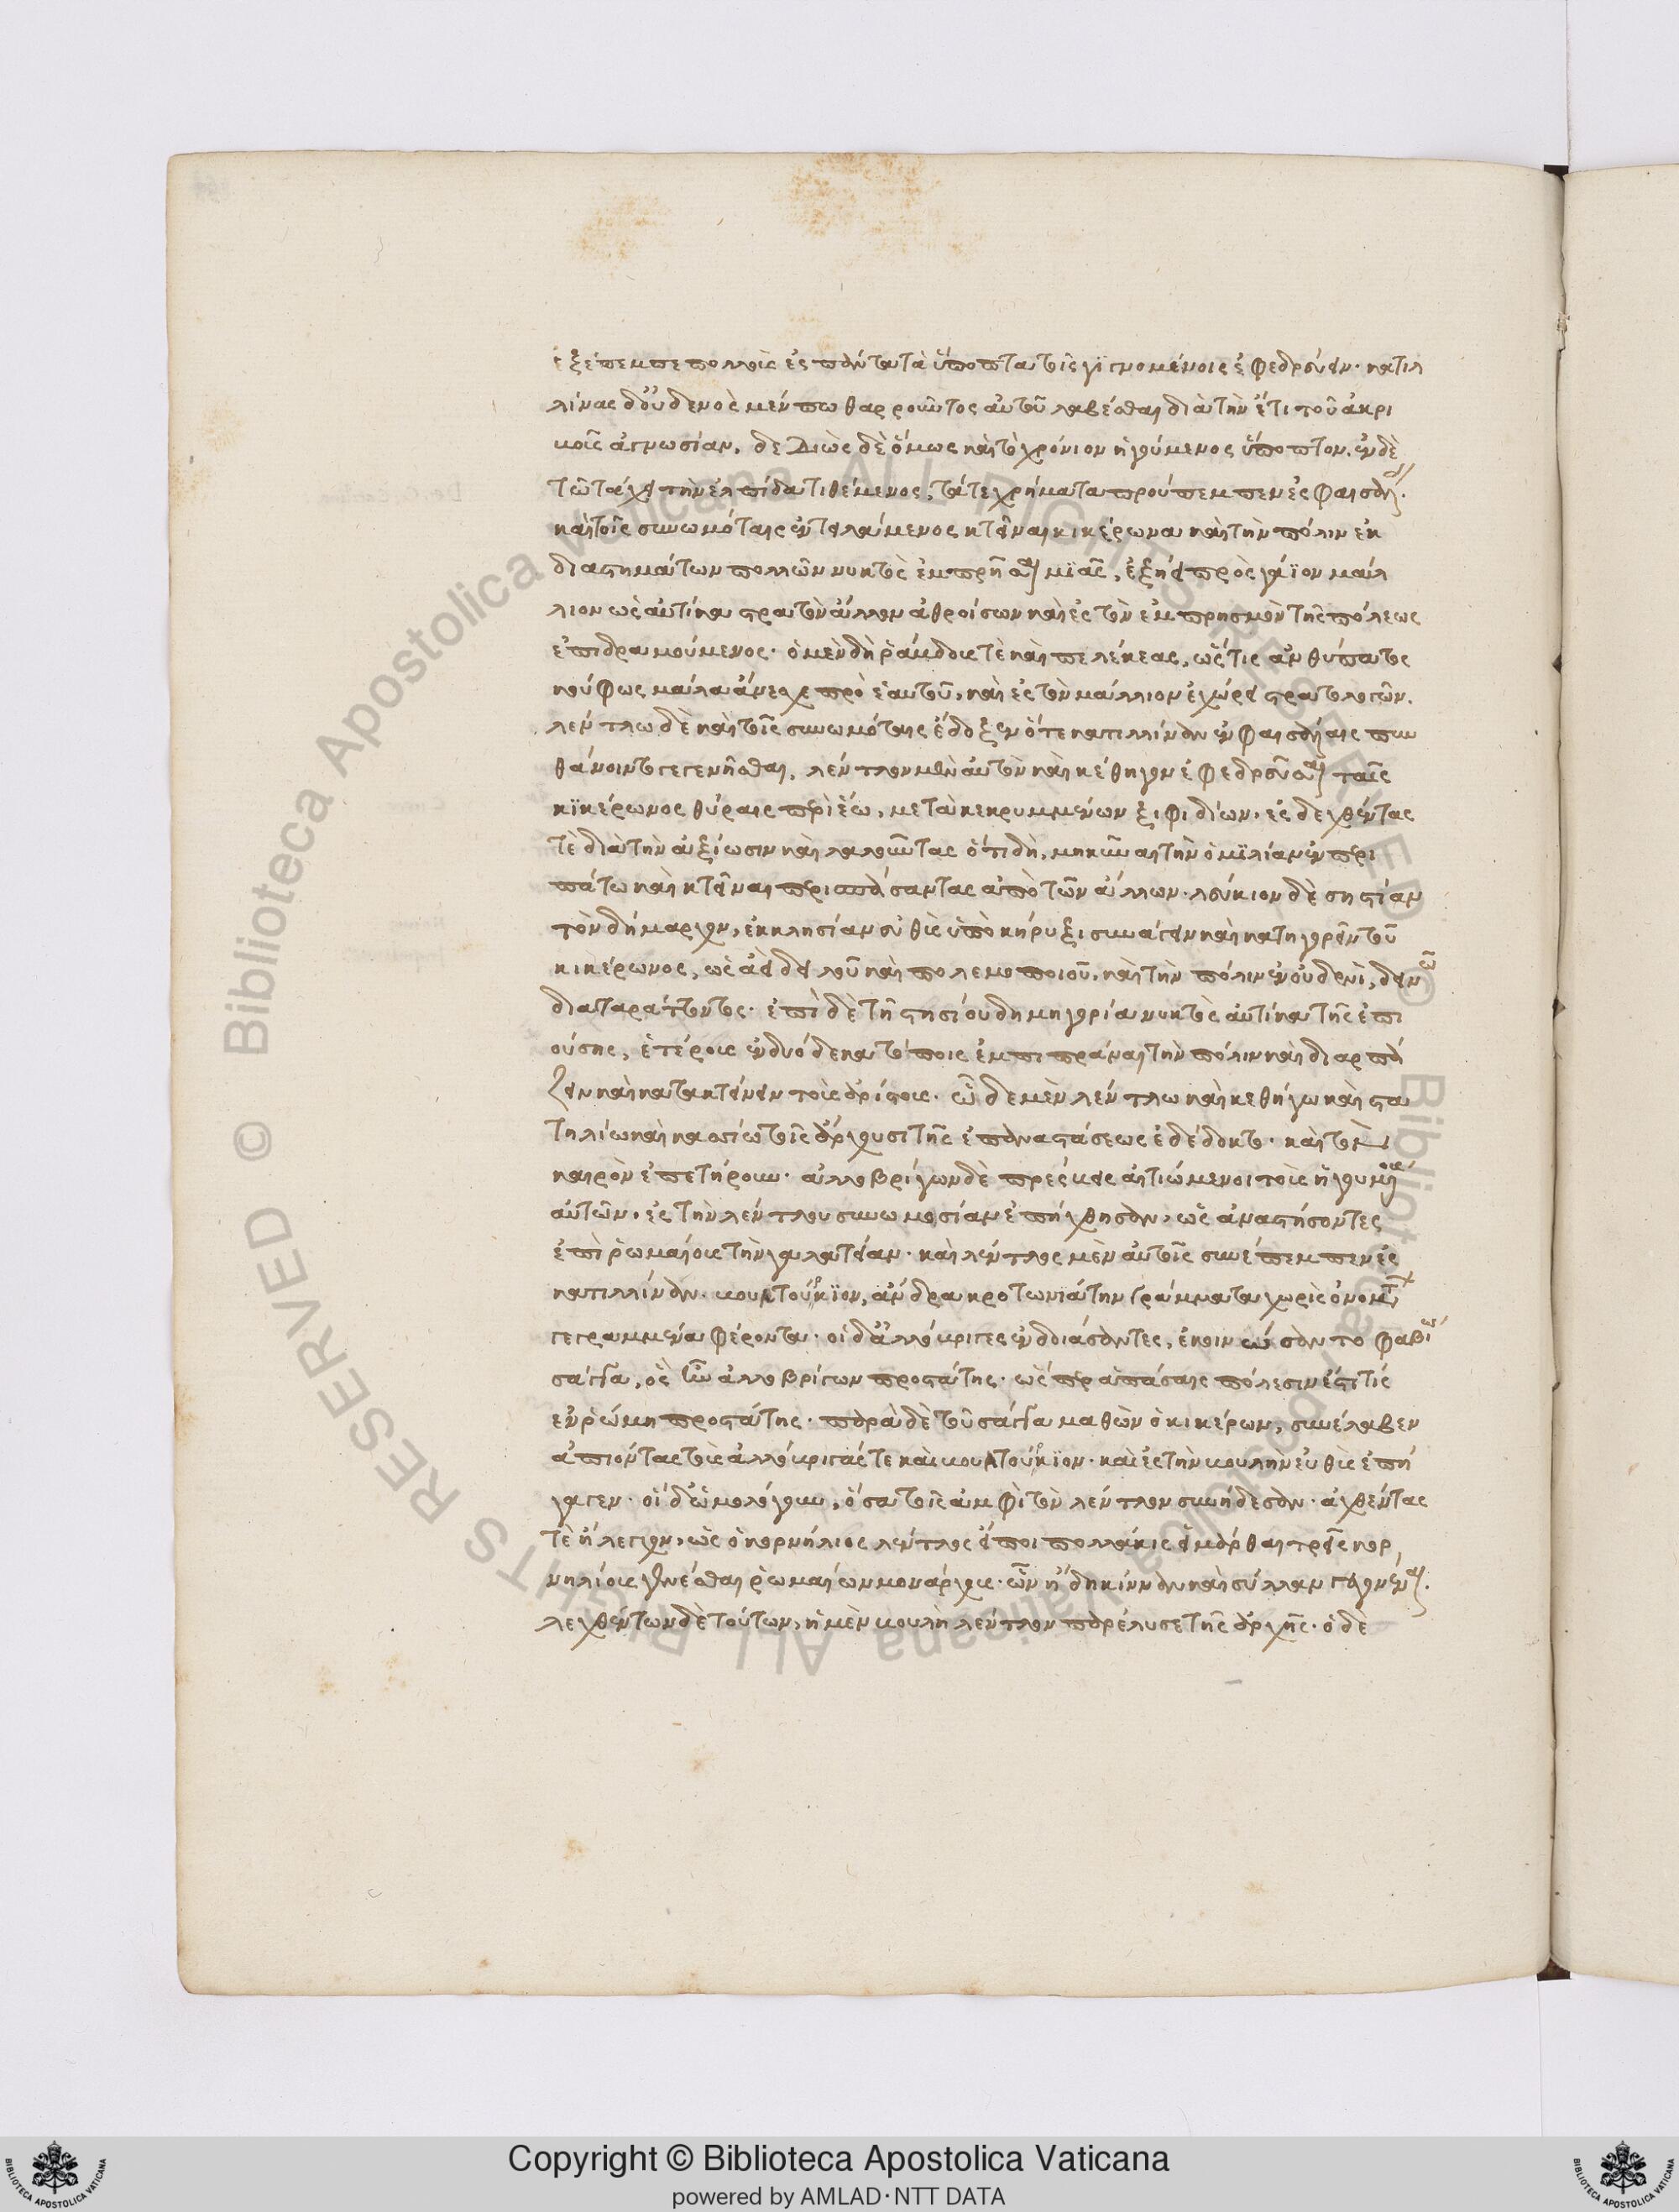 ἐξέπεμπε πολλοὺς ἐς πάντα τὰ ὕποπτα τοῖς γιγνομένοις ἐφεδρεύειν· κατιλ
λίνας δ' οὐδενὸς μέν πω θαρροῦντος αὐτοῦ λαβέσθαι διὰ τὴν ἔτι τοῦ ἀκρι
βοῦς ἀγνωσίαν, δεδιὼς δὲ ὅμως καὶ τὸ χρόνιον ἡγούμενος ὕποπτον, ἐν δὲ
τῷ τάχει τὴν ἐλπίδα τιθέμενος, τά τε χρήματα προύπεμπεν ἐς φαισούλας.
καὶ τοῖς συνωμόταις ἐντειλάμενος κτεῖναι κικέρωνα καὶ τὴν πόλιν ἐκ
διαστημάτων πολλῶν νυκτὸς ἐμπρῆσαι μϊᾶς, ἐξῄει πρὸς γάϊον μάλ
λιον ὡς αὐτίκα στρατὸν ἄλλον ἀθροίσων καὶ ἐς τὸν ἐμπρησμὸν τῆς πόλεως
ἐπιδραμούμενος. ὁ μὲν δὴ ῥάβδους τὲ καὶ πελέκεας, ὥς τις ἀνθύπατος
κούφως μάλα ἀνέσχε πρὸ ἑαυτοῦ, καὶ ἐς τὸν μάλλιον ἐχώρει στρατολογῶν.
λέντλῳ δὲ καὶ τοῖς συνωμόταις ἔδοξεν ὅτε κατιλλίναν ἐν φαισούλαις πυν
θάνοιντο γεγενῆσθαι, λέντλον μὲν αὐτὸν καὶ κέθηγον ἐφεδρεῦσαι ταῖς
κϊκέρωνος θύραις περὶ ἕω, μετὰ κεκρυμμένων ξιφιδίων. ἐσδεχθέντας
τὲ διὰ τὴν ἀξίωσιν καὶ λαλοῦντας ὁτιδὴ, μηκῦναι τὴν ὁμϊλίαν ἐν περι
πάτῳ καὶ κτεῖναι περισπάσαντας ἀπὸ τῶν ἄλλων. λεύκιον δὲ σηστίαν
τὸν δήμαρχον, ἐκκλησίαν εὐθὺς ὑπὸ κήρυξι συνάγειν καὶ κατηγορεῖν τοῦ
κικέρωνος, ὡς ἀεὶ δειλοῦ καὶ πολεμοποιοῦ, καὶ τὴν πόλιν ἐν οὐδενὶ, δεινῷ
διαταράττοντος. ἐπὶ δὲ τῇ σηστίου δημηγορίᾳ νυκτὸς αὐτίκα τῆς ἐπι
ούσης, ἑτέρους ἐν δυόδεκα τόποις ἐμπιπράναι τὴν πόλιν καὶ διαρπά
ζειν καὶ κατακτείνειν τοὺς ἀρίστους. ὧδε μὲν λέντλῳ καὶ κεθήγῳ καὶ στα
τηλίῳ καὶ κασσίῳ τοῖς ἄρχουσι τῆς ἐπαναστάσεως ἐδέδοκτο. καὶ τὸν
καιρὸν ἐπετήρουν. ἀλλοβρίγων δὲ πρέσβεις αἰτιώμενοι τοὺς ἡγουμένους
αὐτῶν, ἐς τὴν λέντλου συνωμοσίαν ἐπήχθησαν, ὡς ἀναστήσοντες
ἐπὶ ῥωμαίους τὴν γαλατείαν. καὶ λέντλος μὲν αὐτοῖς συνέπεμπεν ἐς
κατιλλίναν. βουλτούρκϊον, ἄνδρα κροτωνιάτην γράμματα χωρὶς ὀνομάτων
γεγραμμένα φέροντα. οἱ δ' ἀλλόβριγες ἐνδοιάσαντες, ἐκοινώσαντο φαβίῳ
σάγγα, ὃς ἦν ἀλλοβρίγων προστάτης. ὥσπερ ἁπάσαις πόλεσιν ἔστι τίς
ἐν ῥώμῃ προστάτης. παρὰ δὲ τοῦ σάγγα μαθὼν ὁ κικέρων, συνέλαβεν
ἀπιόντας τοὺς ἀλλόβριγάς τε καὶ βουλτούρκϊον. καὶ ἐς τὴν βουλὴν εὐθὺς ἐπή
γαγεν. οἱ δ' ὡμολόγουν, ὅσα τοῖς ἀμφὶ τὸν λέντλον συνῄδεσαν. ἀχθέντας
τὲ ἤλεγχον, ὡς ὁ κορνήλιος λέντλος εἴποι πολλάκις εἱμάρθαι τρεῖς κορ
νηλίους γενέσθαι ῥωμαίων μονάρχους. ὧν ἤδη κίνναν καὶ σύλλαν γεγονέναι.
λεχθέντων δὲ τούτων, ἡ μὲν βουλὴ λέντλον παρέλυσε τῆς ἀρχῆς. ὁ δὲ
© Biblioteca Apostolica Vaticana ALL RIGHTS RESERVED © Biblioteca Apostolica Vaticana ALL RIGHTS RESERVED
Copyright © Biblioteca Apostolica Vaticana
powered by AMLAD･NTT DATA